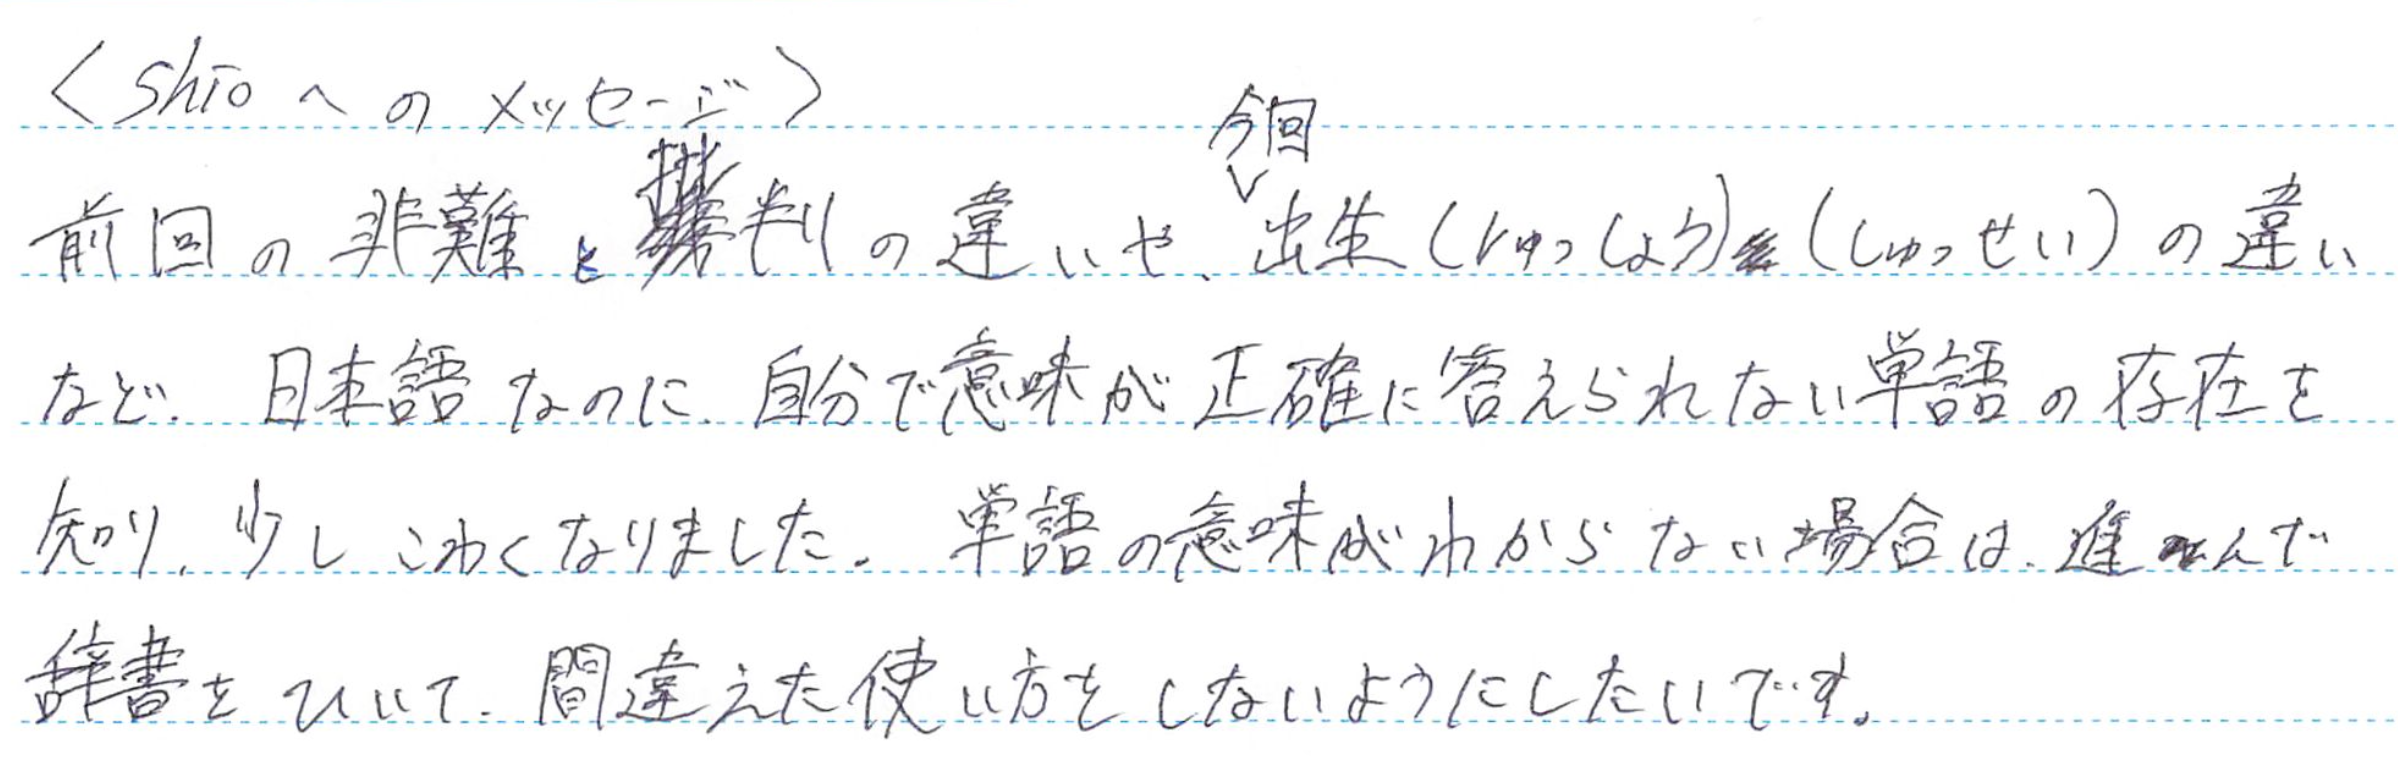 <shioへのメッセージ>
前回の非難と批判の違いや、今回出生(しゅっしょう)と(しゅっせい)の違い
など、日本語なのに、自分で意味が正確に答えられない単語の存在を
知り、少しこわくなりました。単語の意味がわからない場合は、進んで
辞書をひいて、間違えた使い方をしないようにしたいです。